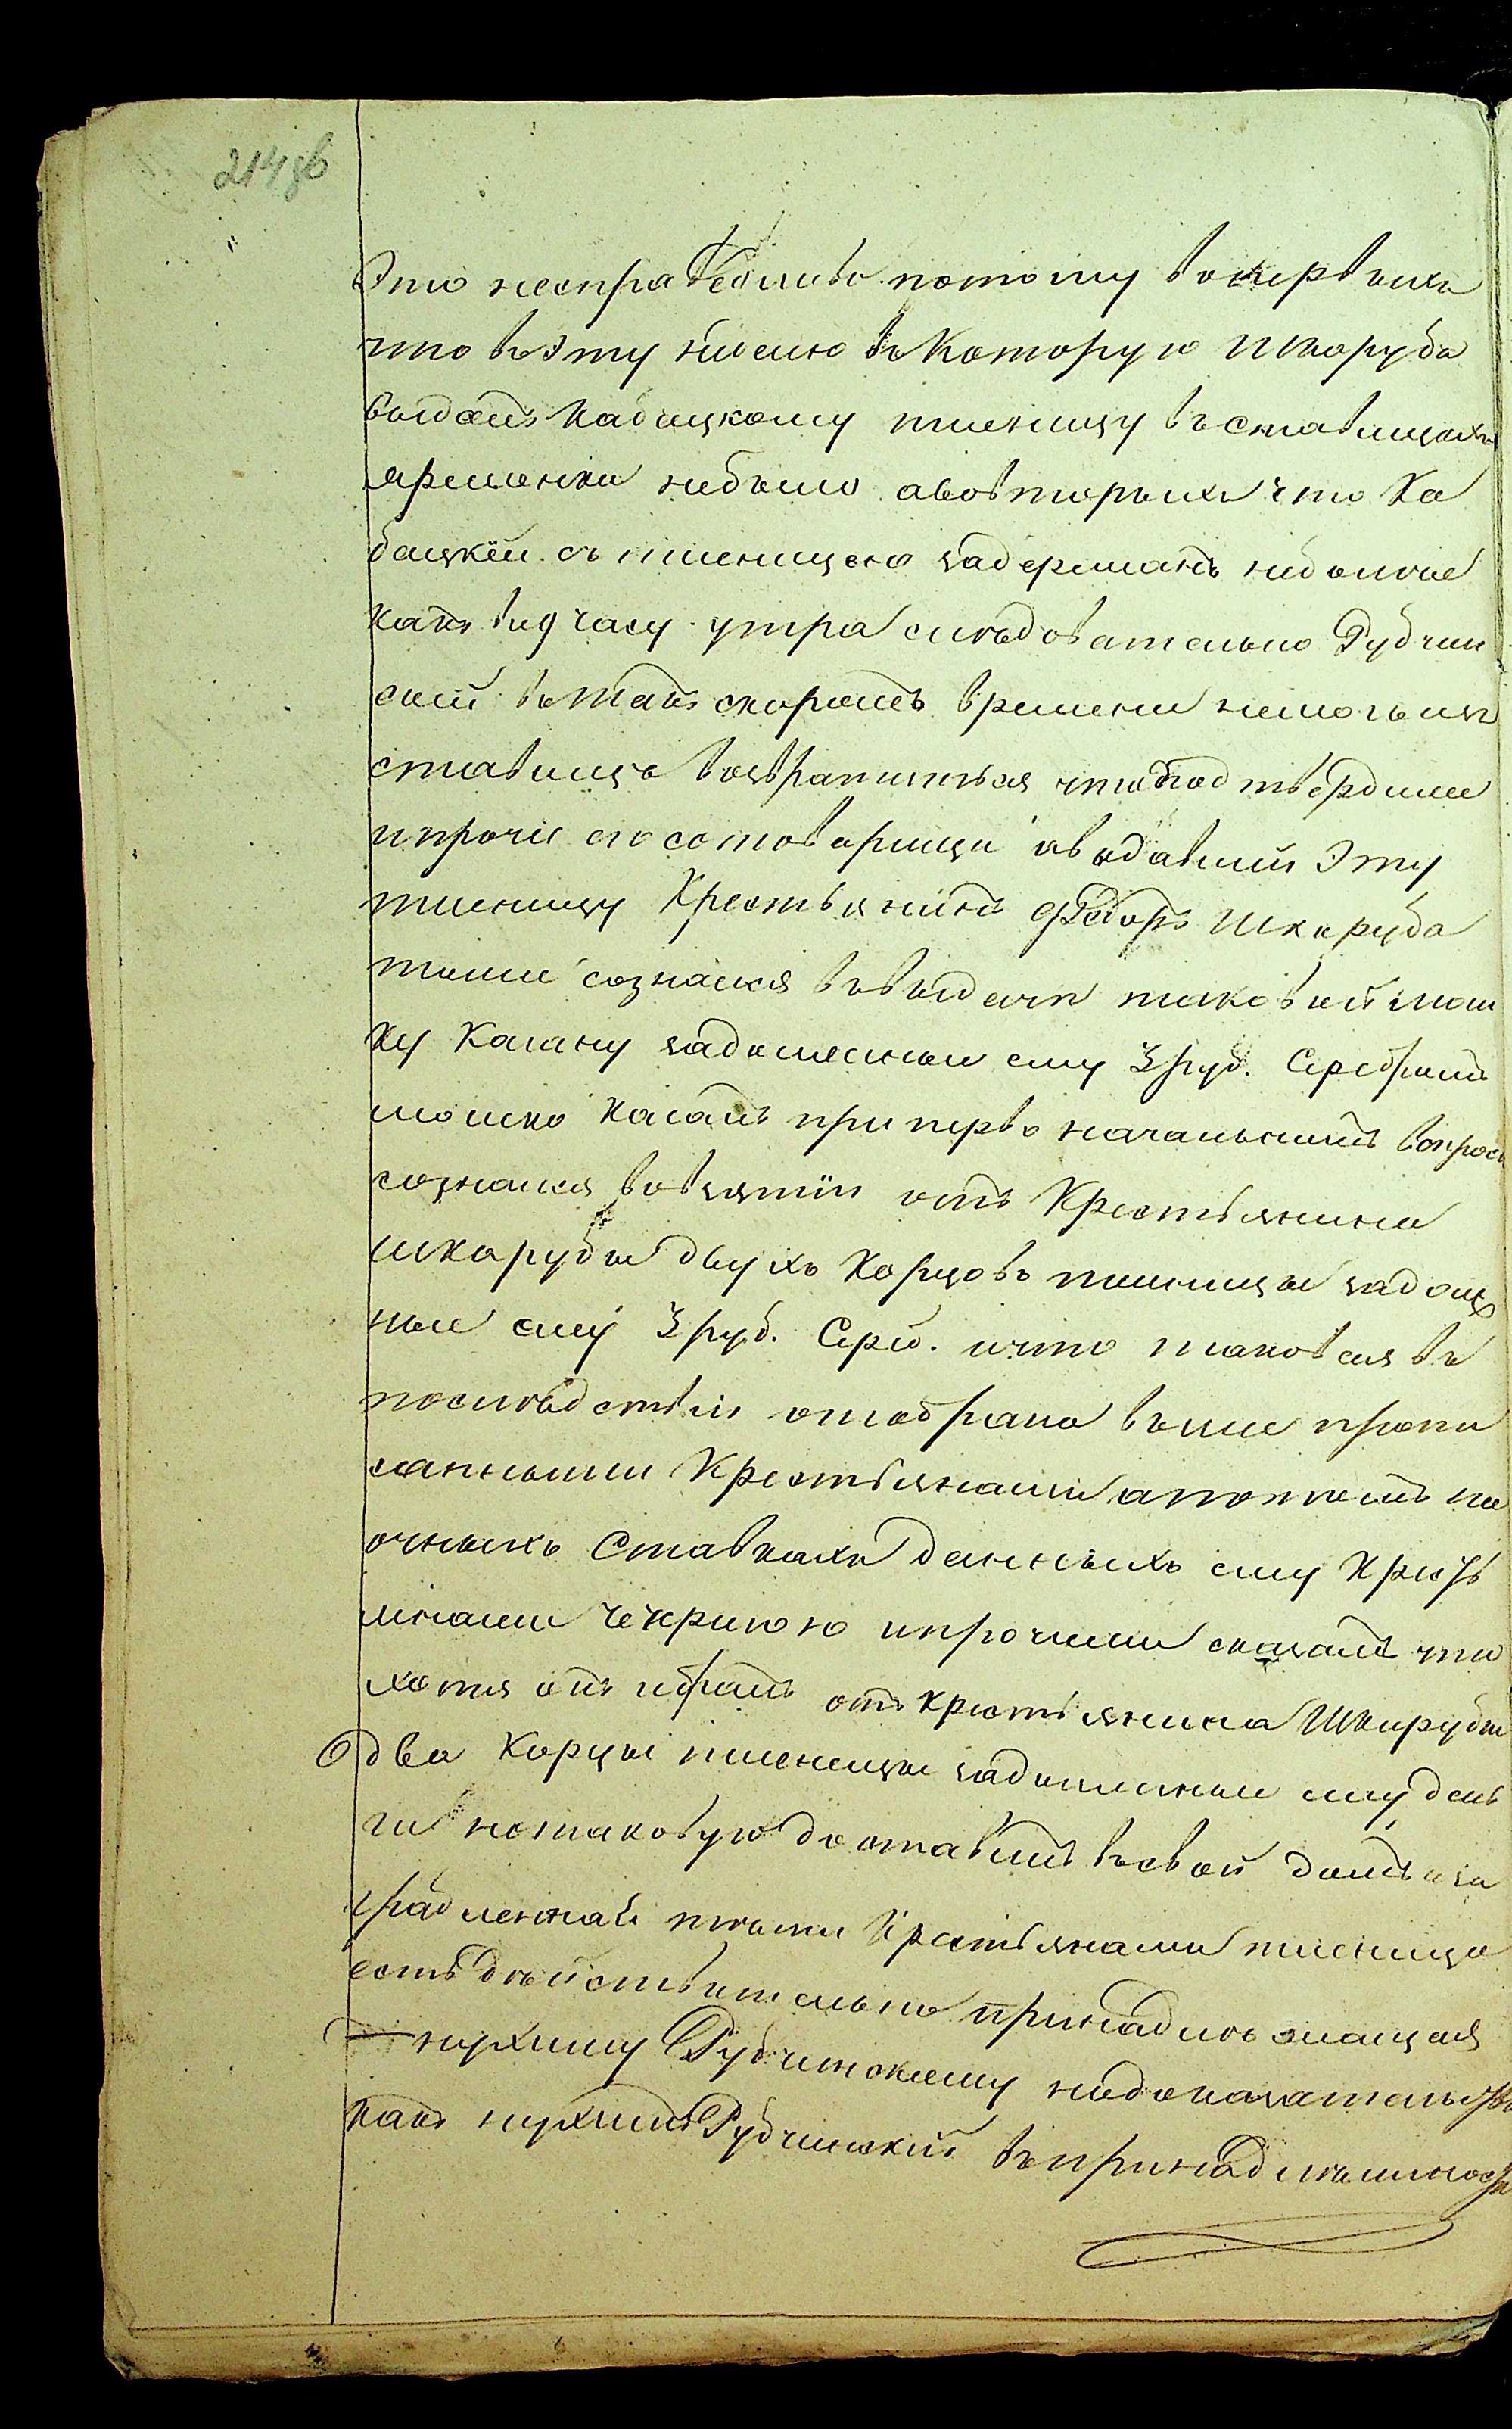 214 зв
Это несправедливо потому вопервыхъ
что въ эту ночь въ которую Шкаруба
выдалъ Кабацкому пшеницу въ Ставищахъ
ярмонки небыло, авовторыхъ что Ка
бацкій съ пшеницею задержанъ неболие
какъ въ 9 часу утра следовательно Рубчин
скій въ такъ скоромъ времени немогъ изъ
Ставищъ возвратиться что подтвердили
ипрочие его сотоварищи ивыдавший эту
пшеницу крестьянинъ Федоръ Шкаруба
тоже сознался въ выдачи таковой Мош
ку Кагану задолжные ему 3 руб. серебромъ
Мошко Каганъ при первоначальномъ вопросе
сознался вовзятіи отъ крестьянина
Шкарубы двухъ корцовъ пшеницы задолж
ные ему 3 руб. сереб. ичто таковая въ
последствіи отобрана выше пропи
санными крестьянами апотомъ на
очныхъ ставкахъ данныхъ ему кресть
янами Чекрыгою ипрочими сказалъ что
хотя онъ ибралъ отъ крестьянина Шкарубы
два корцы пшеницы задолжные ему день
ги но таковую доставилъ въ свой домъ иза
грабленная теми крестьянами пшеница
есть действительно принадлежащая
Нухиму Рубчинскому недоказательст
какъ Нухимъ Рубчинскій въ принадлежност